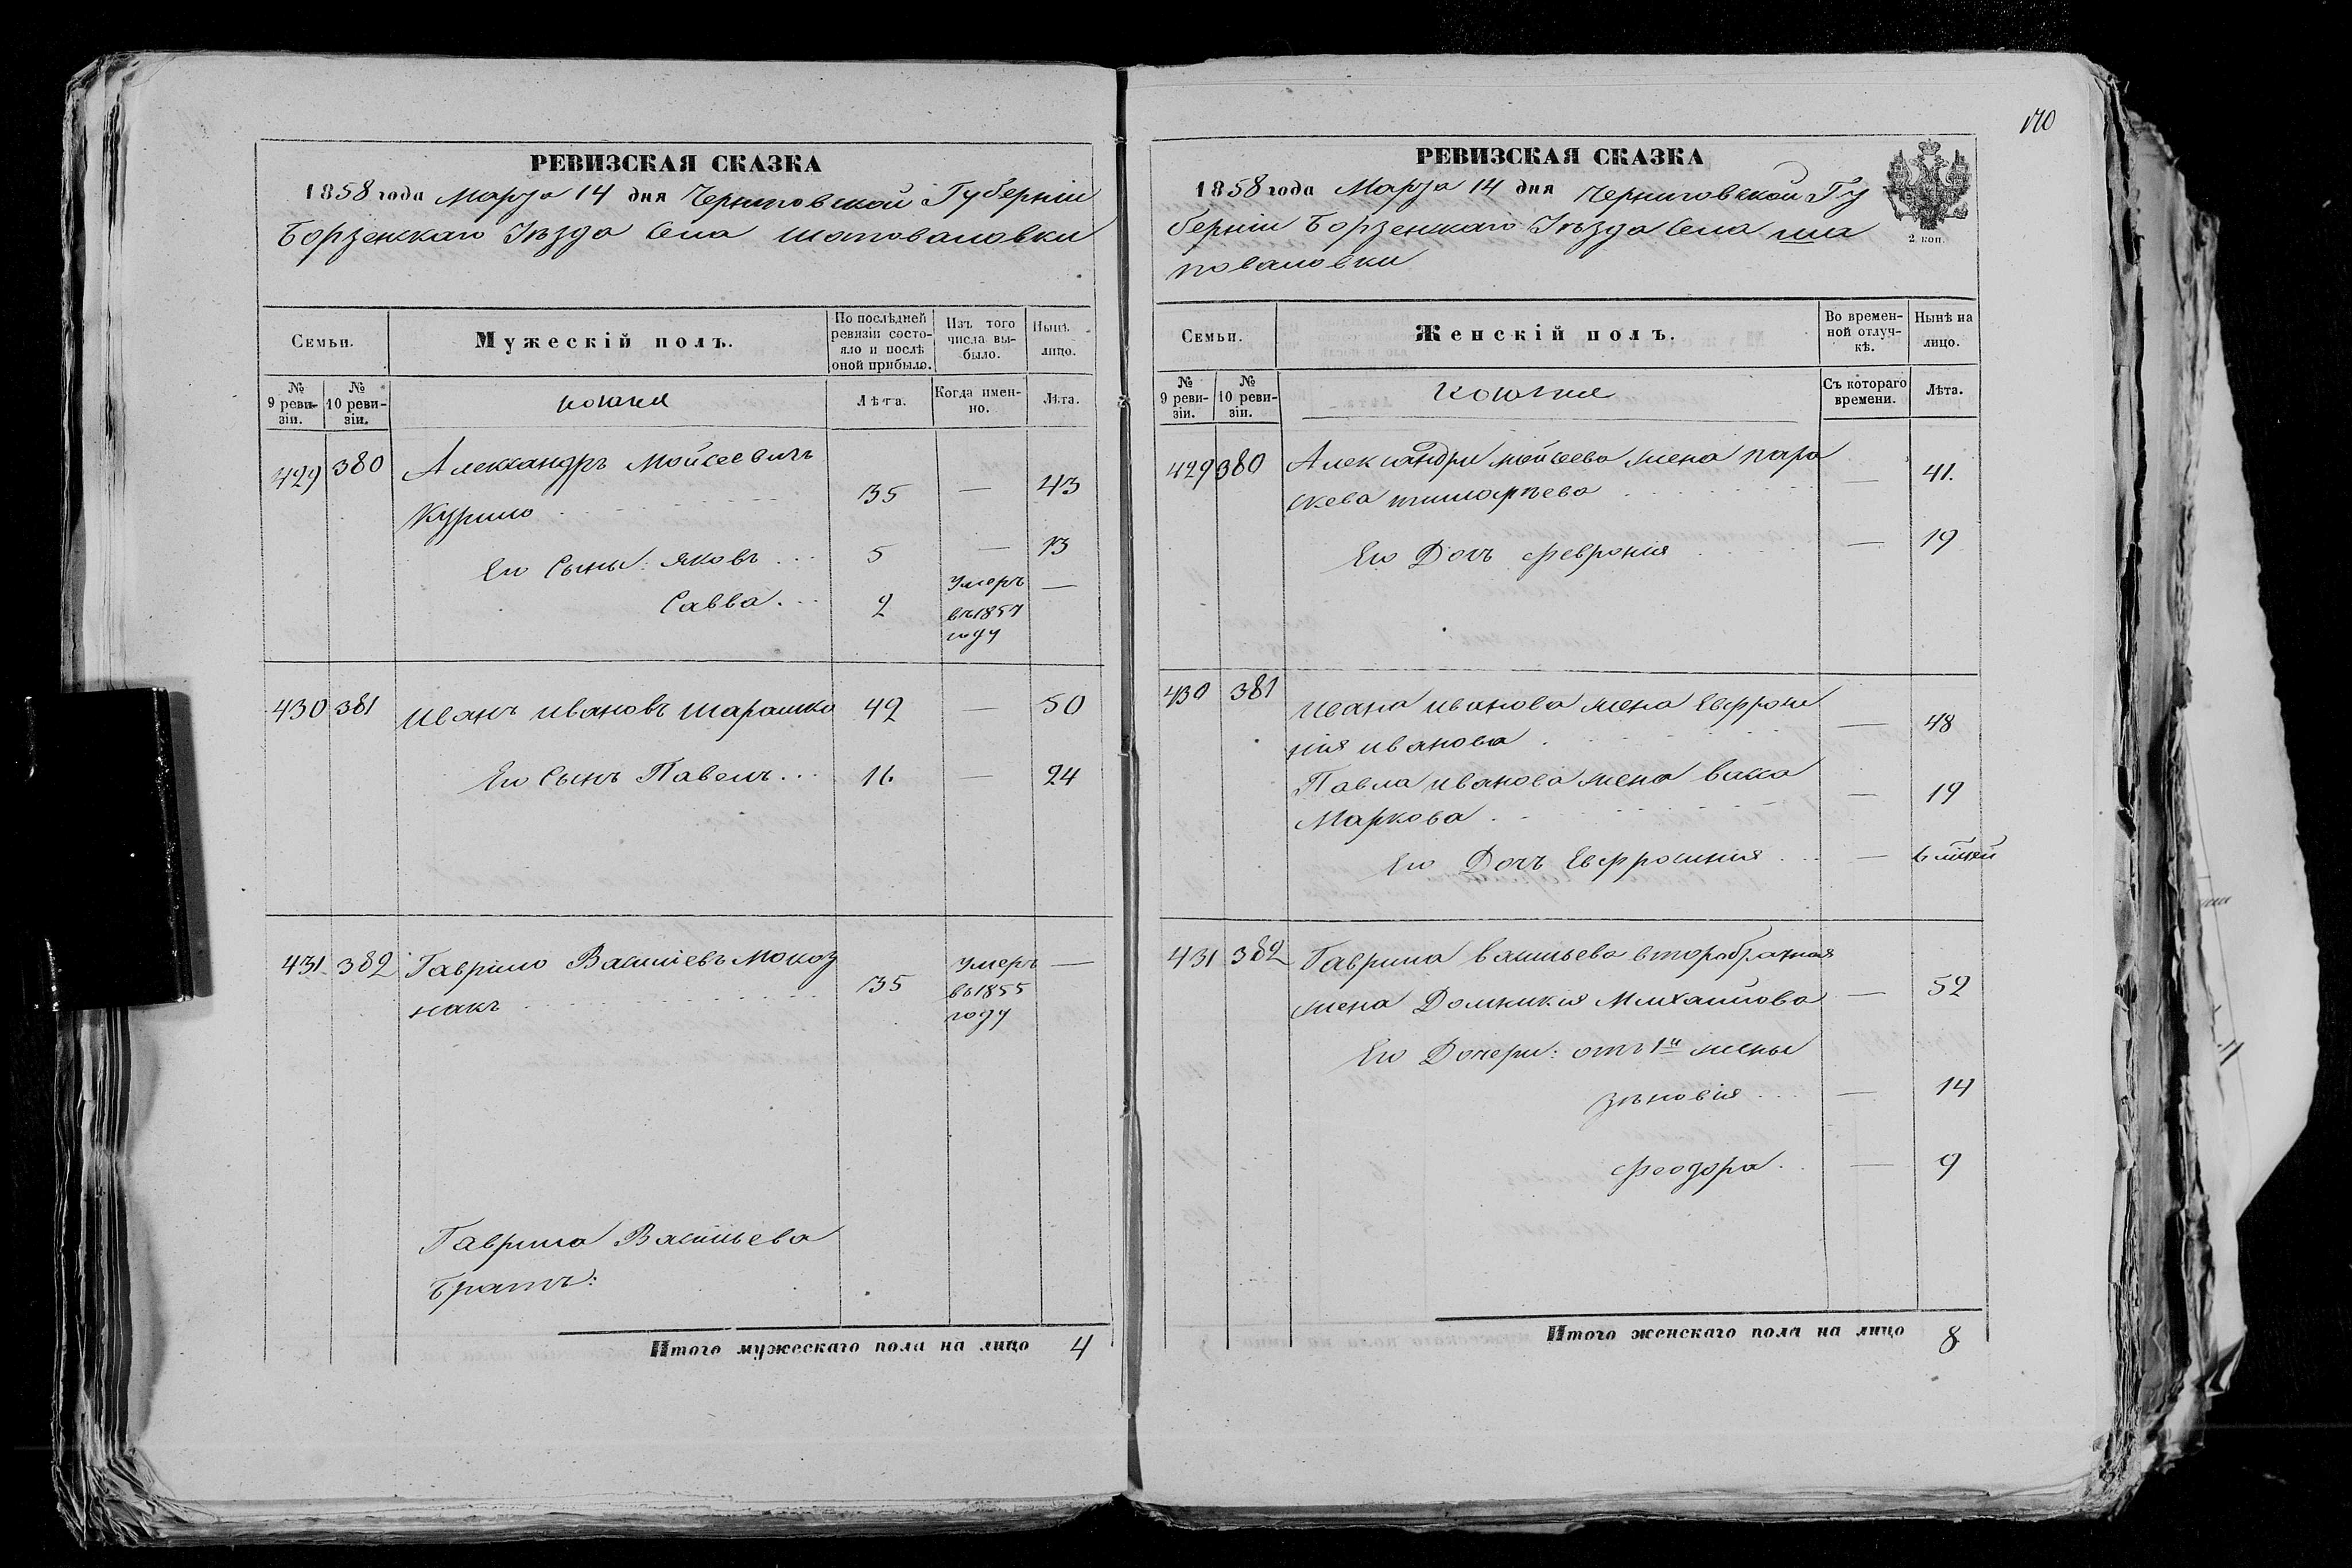 РЕВИЗСКАЯ СКАЗКА
1858 года Марта 14 дня Черниговской Губерніи
Борзенскаго Уѣзда Села Шаповаловки
Семьи.
Мужескій полъ.
По послѣдней ревизіи состояло и послѣ оной прибыло.
Изъ того числа выбыло.
Нынѣ лицо.
№ 9 ревизіи.
№ 10 ревизіи.
козаки
Лѣта.
Когда именно.
Лѣта.
429 380 Александръ Мойсеевичъ
Курило 35 — 43
Его Сыны: Яковъ 5 — 13
Савва 2 Умеръ —
въ 1857
году
430 381 Иванъ Ивановъ Шарашко 42 — 50
Его Сынъ Павелъ 16 — 24
431 382 Гаврило Васильевъ
накъ 35 Умеръ —
въ 1855
году
Гаврила Васильева
братъ:
Итого мужескаго пола на лицо 4
170
РЕВИЗСКАЯ СКАЗКА
1858 года Марта 14 дня Черниговской Гу
берніи Борзенскаго Уѣзда Села Ша
поваловки
2 коп.
Семьи.
Женскій полъ.
Во временной отлучкѣ.
Нынѣ на лицо.
№ 9 ревизіи.
№ 10 ревизіи.
козачки
Съ котораго времени.
Лѣта.
429 380 Александра Мойсеева жена Пара
скева — 41.
Его Дочь Феврония — 19
430 381 Ивана Иванова жена
нія Иванова — 48
Павла Иванова жена Васса
Маркова — 19
Его Дочь Евфросинія — 6
431 382 Гаврила Васильева второбрачная
жена Домникія Михайлова — 52
Его Дочери: отъ 1й жены
Зѣновія — 14
Феодора — 9
Итого женскаго пола на лицо 8